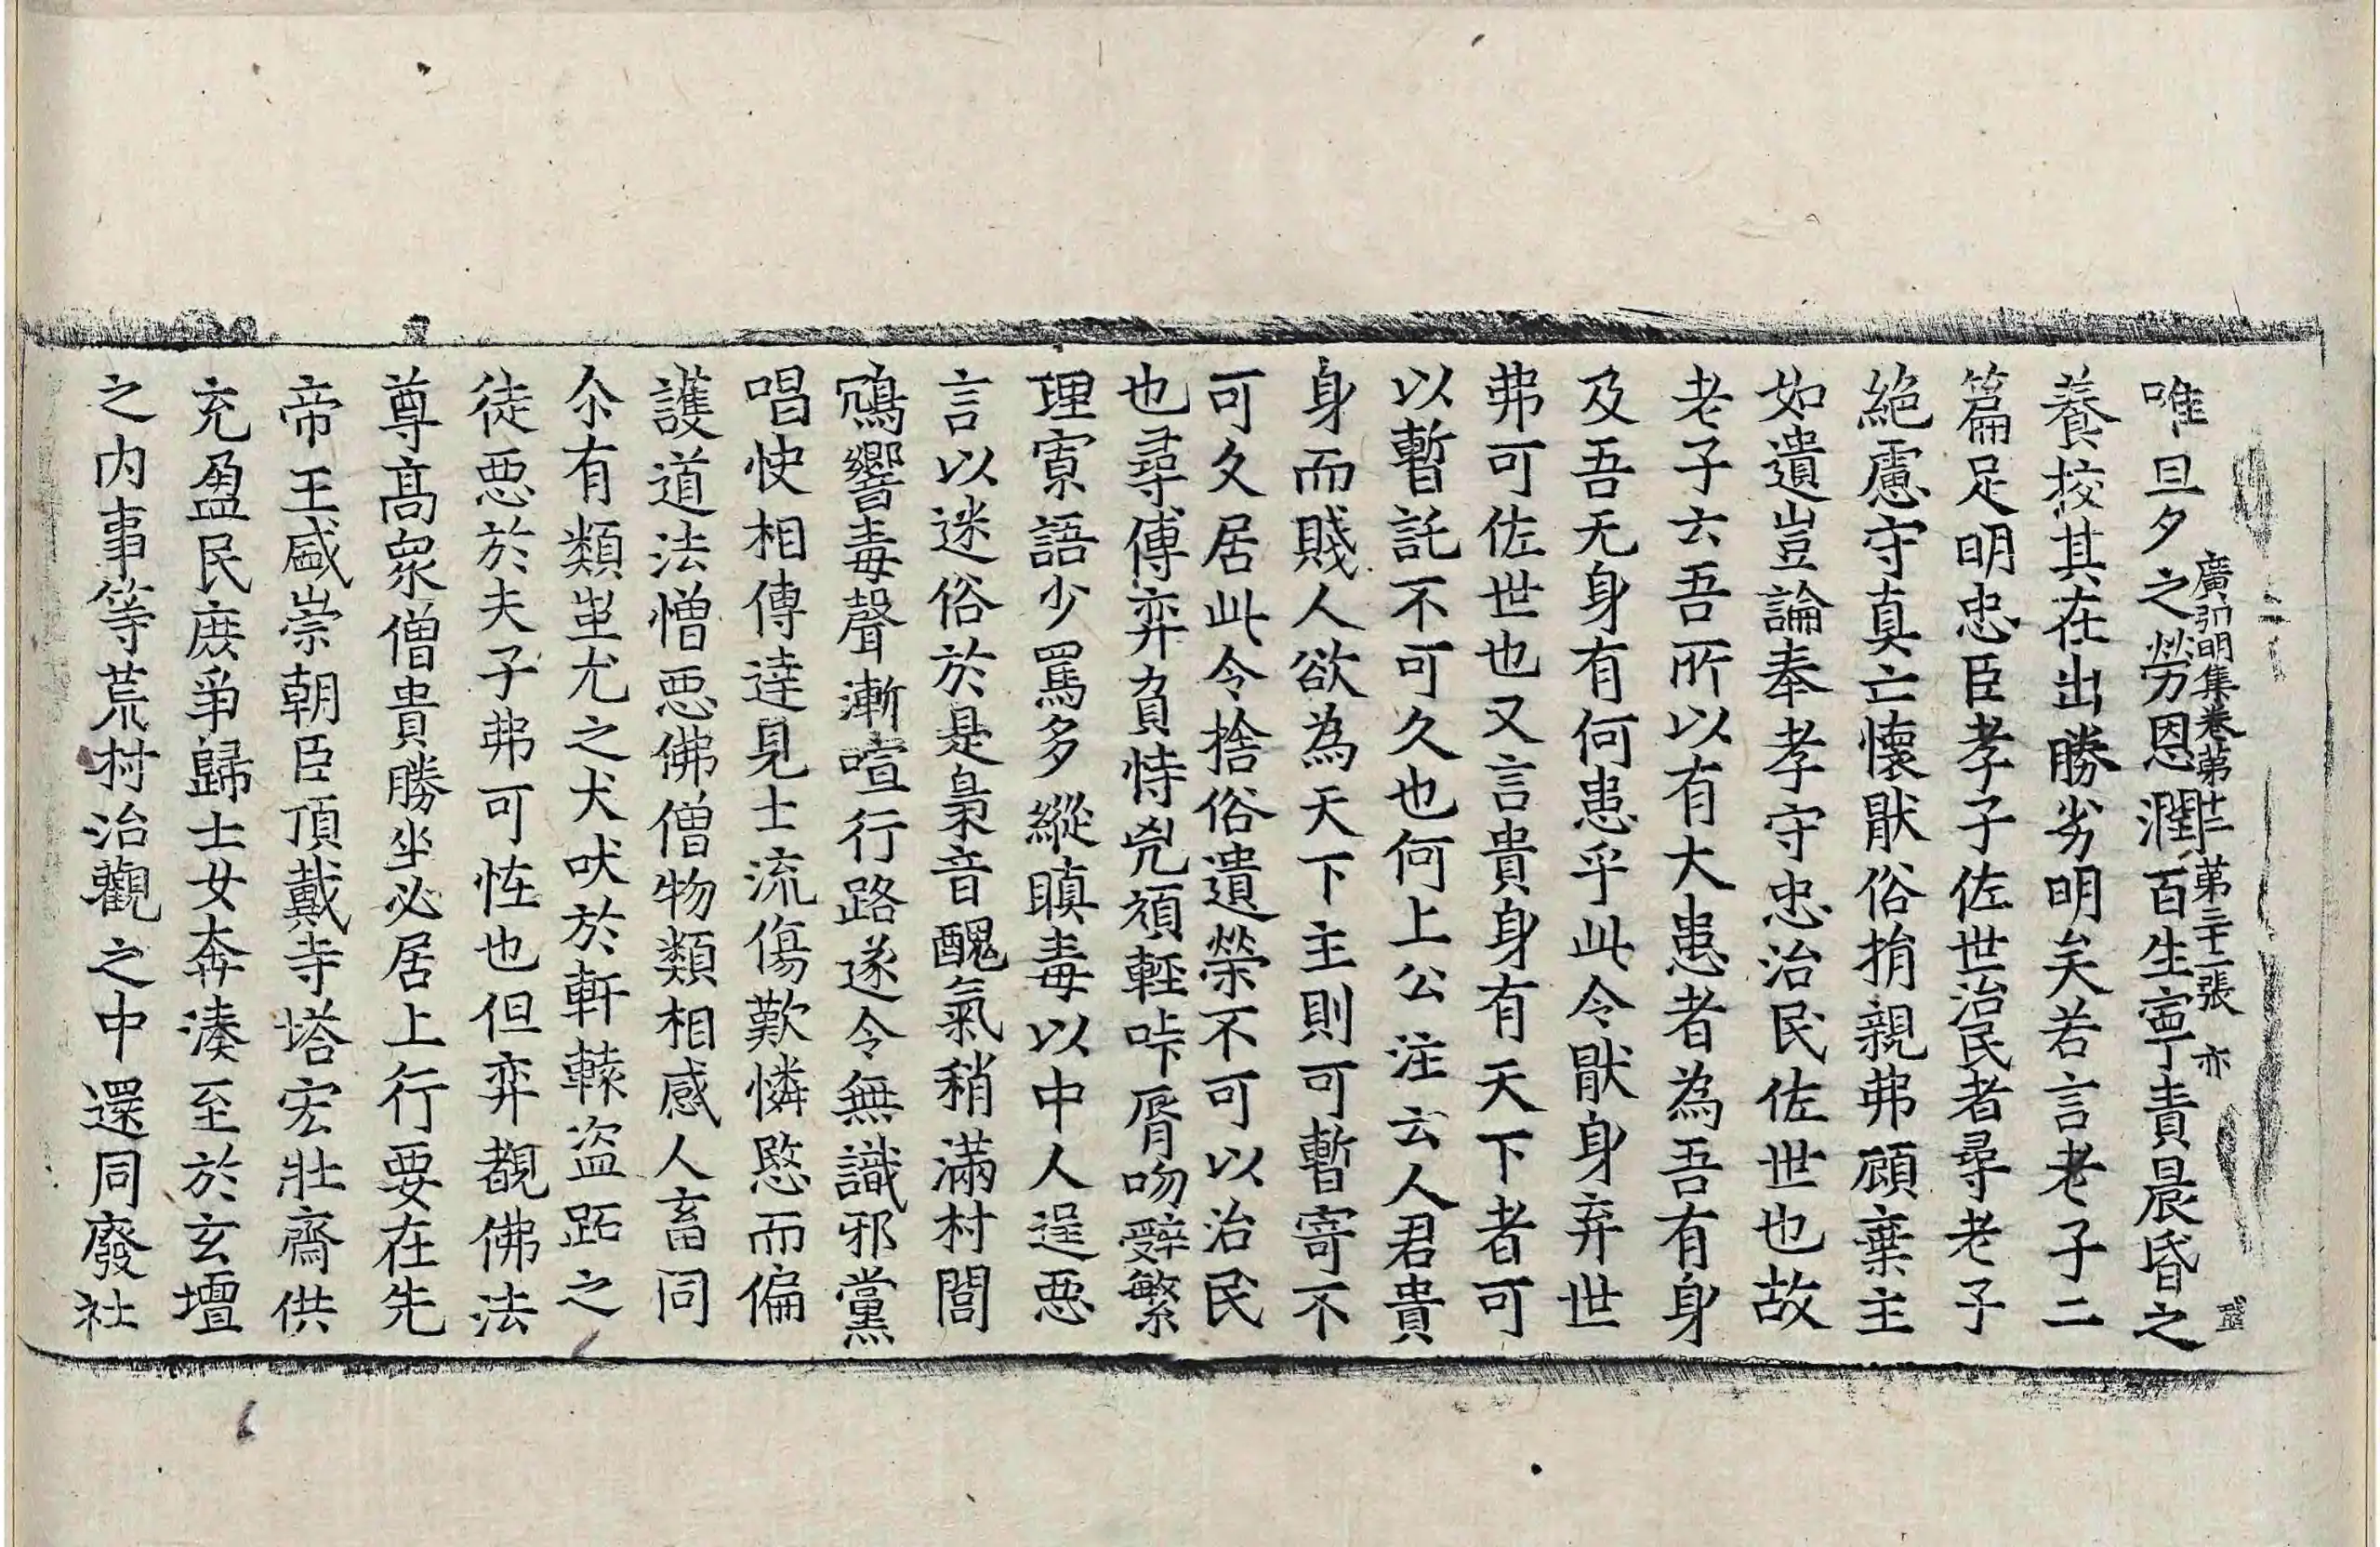 廣弘明集卷第十二 第三十二張 亦
唯旦夕之勞恩潤百生寧責晨昏之
養挍其在出勝劣明矣若言老子二
篇足明忠臣孝子佐世治民者尋老子
絕慮守真亡懷猒俗捐親弗顧棄主
如遺豈論奉孝守忠治民佐世也故
老子云吾所以有大患者為吾有身
及吾无身有何患乎此令猒身弃世
弗可佐世也又言貴身有天下者可
以暫託不可久也何上公注云人君貴
身而賤人欲為天下主則可暫寄不
可久居此令捨俗遺榮不可以治民
也尋傅弈負恃兇頑輕咔脣吻辭繁
理寡語少罵多縱瞋毒以中人逞惡
言以迷俗於是梟音醜氣稍滿村閭
鴆響毒聲漸喧行路遂令無識邪黨
唱快相傳達見士流傷歎憐愍而偏
護道法憎惡佛僧物類相感人畜同
尒有類蚩尤之犬吠於軒轅盜跖之
徒惡於夫子弗可恠也但弈覩佛法
尊高衆僧貴勝坐必居上行要在先
帝王盛崇朝臣頂戴寺塔宏壯齋供
充盈民庶爭歸士女奔湊至於玄壇
之内事等荒村治觀之中還同廢社